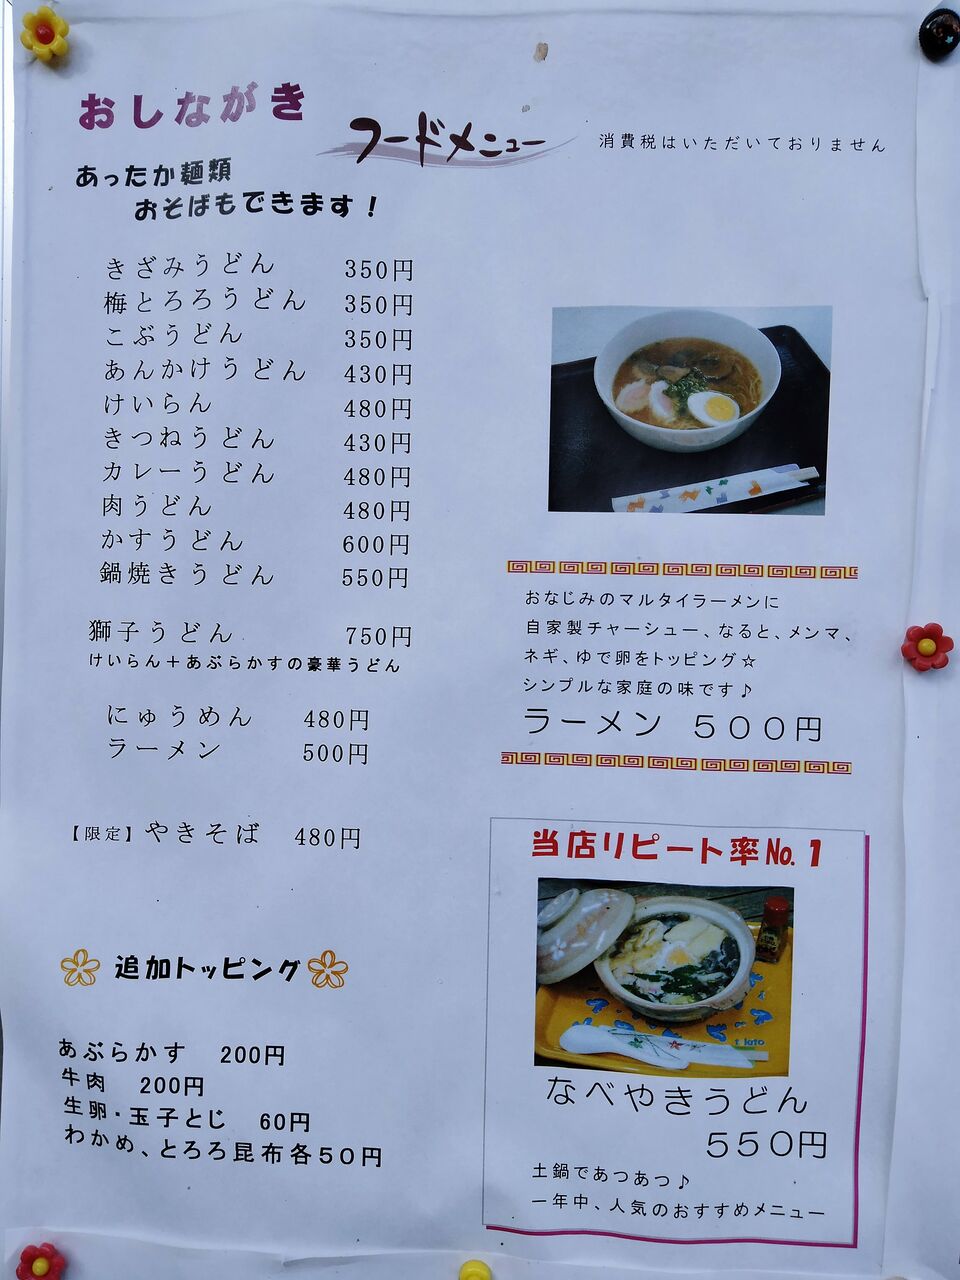 おしながき
フードメニュー
消費税はいただいておりません
あったか麺類
おそばもできます！
きざみうどん 350円
梅とろろうどん 350円
こぶうどん 350円
あんかけうどん 430円
けいらん 480円
きつねうどん 430円
カレーうどん 480円
肉うどん 480円
かすうどん 600円
鍋焼きうどん 550円
獅子うどん 750円
けいらん＋あぶらかすの豪華うどん
にゅうめん 480円
ラーメン 500円
【限定】やきそば 480円
追加トッピング
あぶらかす 200円
牛肉 200円
生卵・玉子とじ 60円
わかめ、とろろ昆布各５０円
おなじみのマルタイラーメンに
自家製チャーシュー、なると、メンマ、
ネギ、ゆで卵をトッピング☆
シンプルな家庭の味です♪
ラーメン ５００円
当店リピート率№１
なべやきうどん
５５０円
土鍋であつあつ♪
一年中、人気のおすすめメニュー